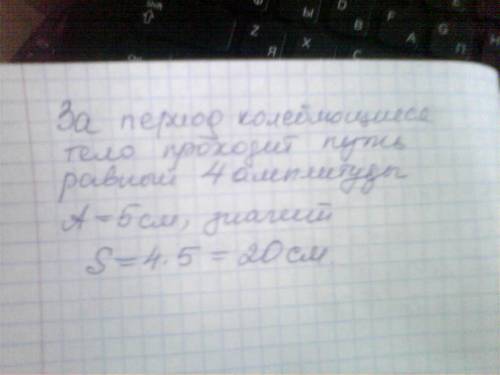 За период колеблющиеся
тело проходит путь
равный 4 амплитуды
A = 5см, значит
S = 4 · 5 = 20 см.